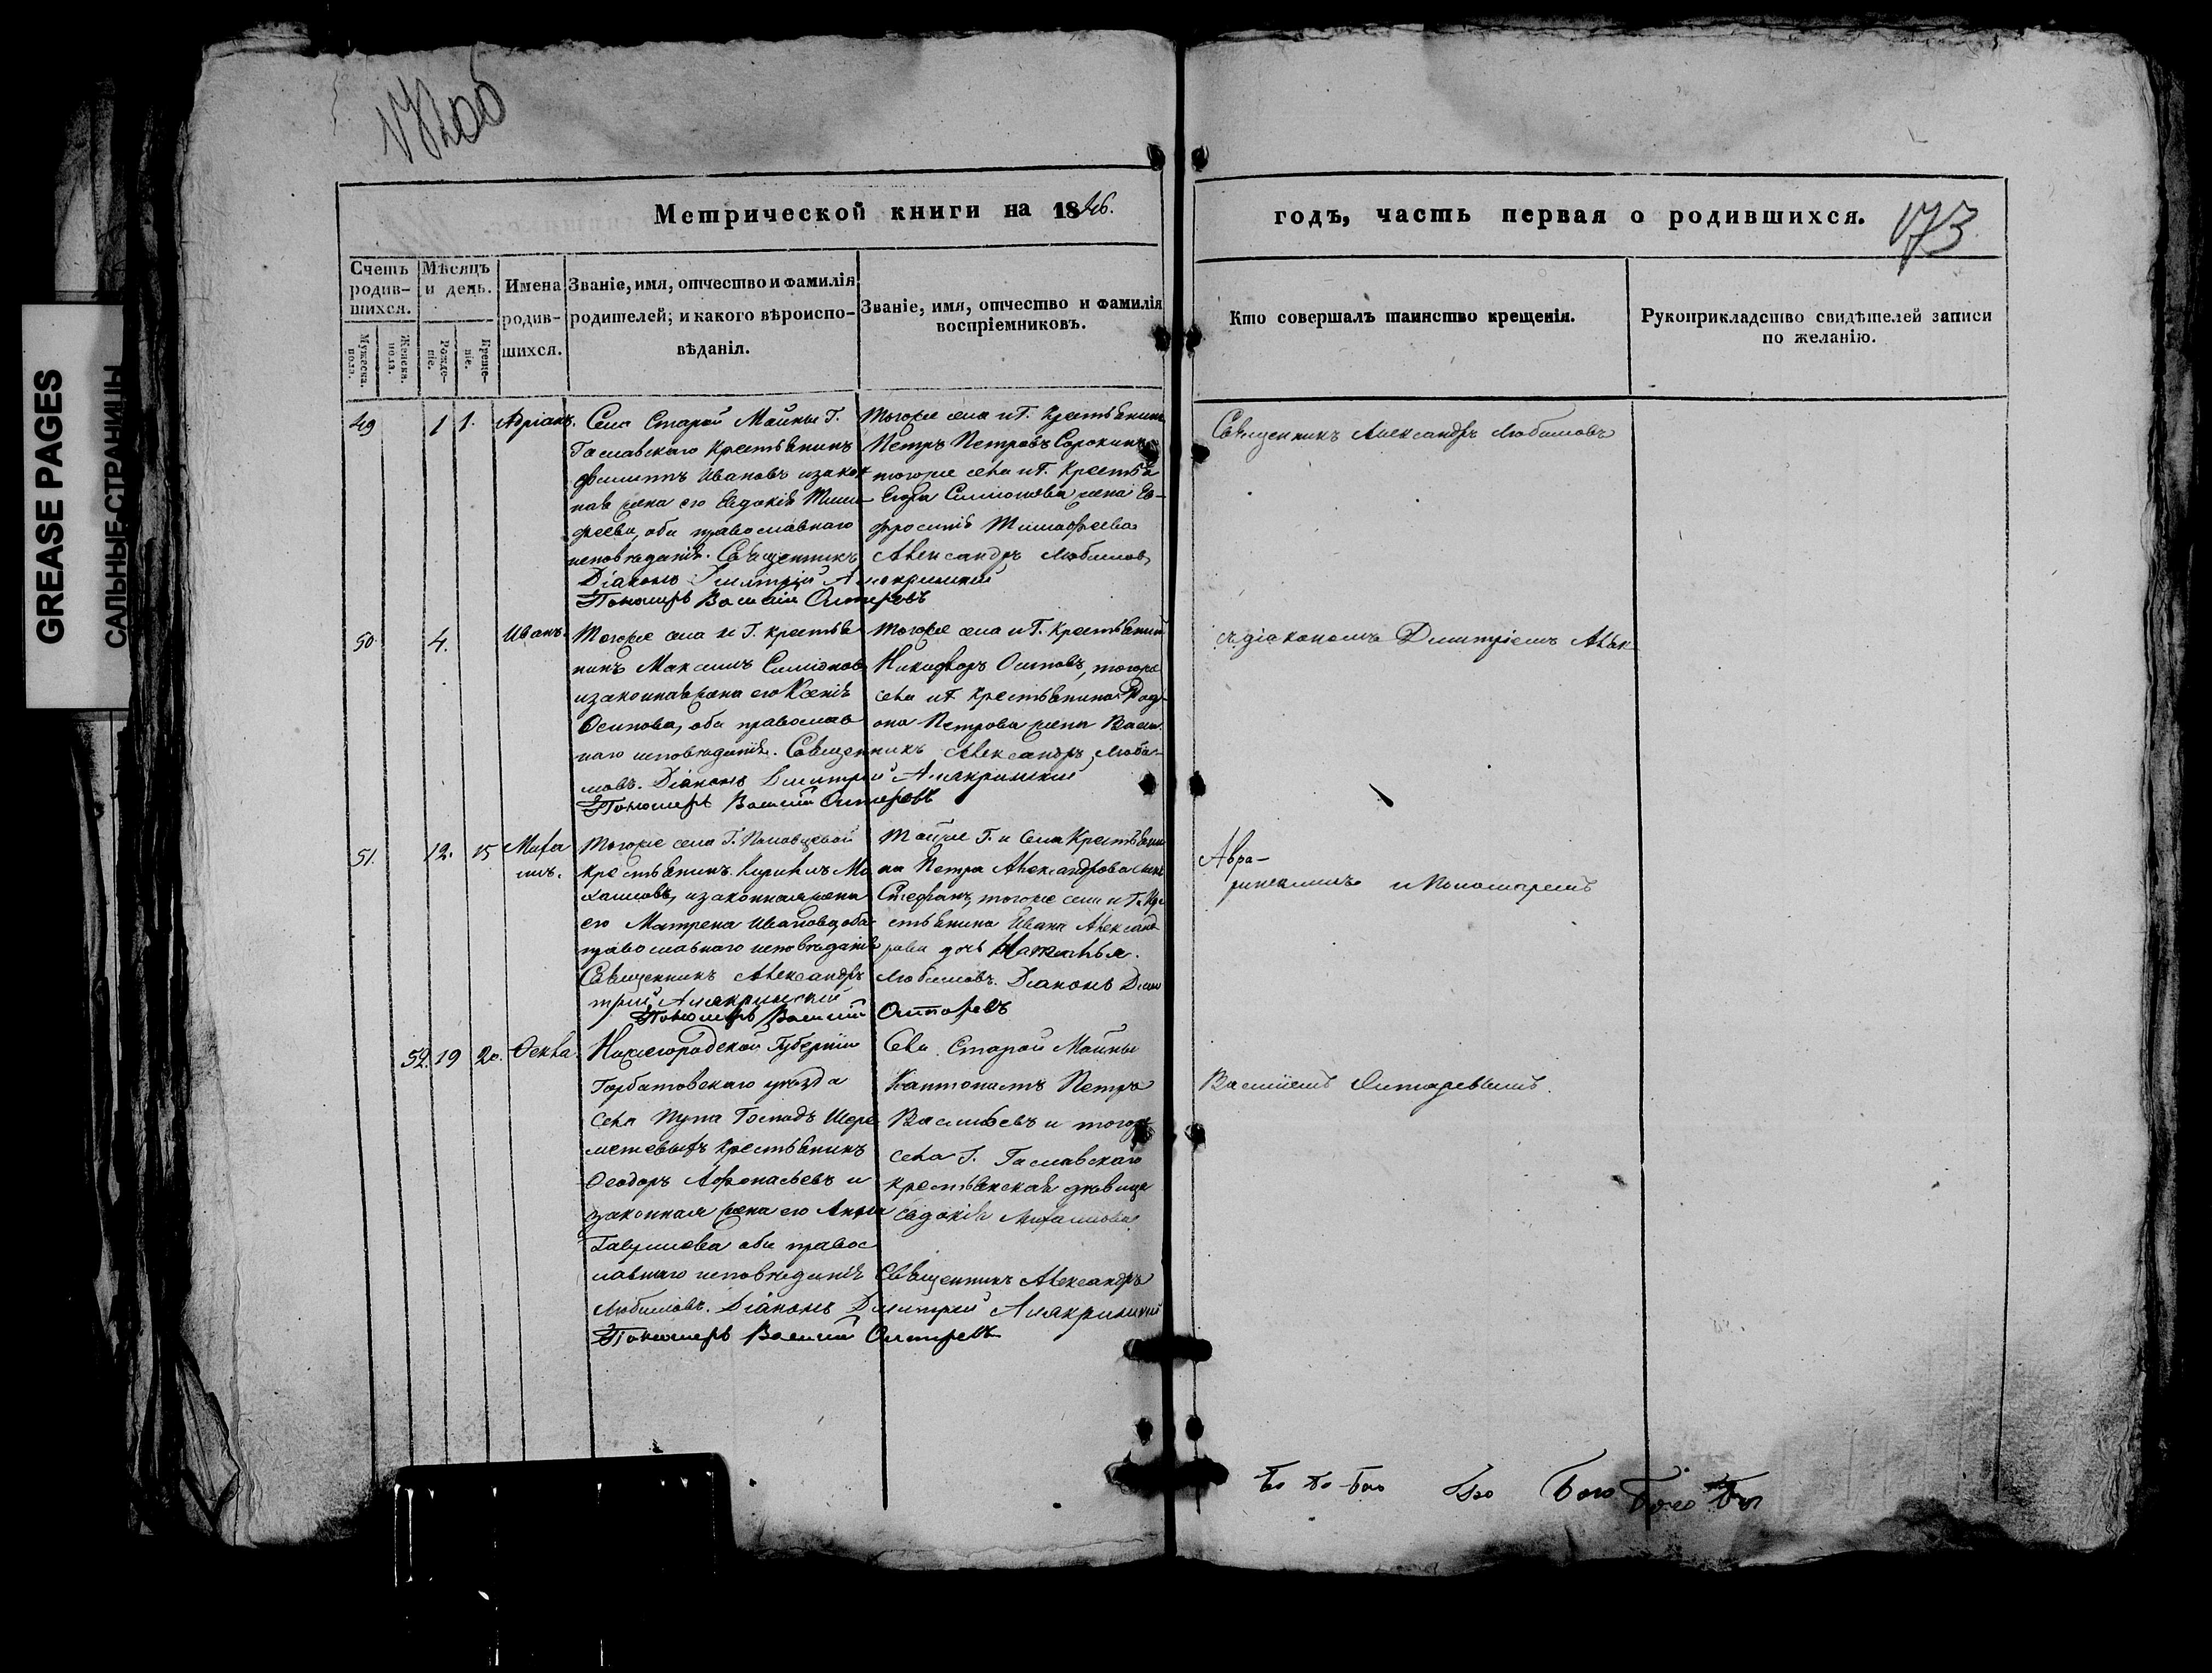 GREASE PAGES
САЛЬНЫЕ СТРАНИЦЫ
Метрической книги на 1846.
годъ, часть первая о родившихся.
173
Счетъ родившихся.
Мужеска. пола.
Женска. пола.
Мѣсяцъ и день.
Рожденіе.
Крещеніе.
Имена родившихся.
Званіе, имя, отчество и фамилія родителей; и какого вѣроисповѣданія.
Званіе, имя, отчество и фамилія воспріемниковъ.
Кто совершалъ таинство крещенія.
Рукоприкладство свидѣтелей записи по желанію.
49 1 1. Адріанъ.
Села Старой Майны Г.
крестьянинъ
Филиппъ Ивановъ и закон
ная жена его Евдокія Тимо
феева, оба православнаго
исповѣданія. Священникъ Александръ Любимовъ
Діаконъ Димитрій
Пономарь Василій
Тогоже села и Г. крестьянинъ
Петръ Петровъ Сорокинъ
тогоже села и Г. крестья
Егора Симіонова жена Ев-
фросинія Тимофеева
Священникъ Александръ Любимовъ
50 4. Иванъ.
Тогоже села и Г. крестья
нинъ Максимъ Симіоновъ
и законная жена его Ксенія
Осипова, оба православ
наго исповѣданія. Священникъ Александръ Люби-
мовъ. Діаконъ Димитрій
Пономарь Василій
Тогоже села и Г. крестьянинъ
Никифоръ Осиповъ, тогоже
села и Г. крестьянина Род-
она Петрова жена Васи
съ діакономъ Димитріемъ
51. 12. 15 Миха
илъ.
Тогоже села Г.
крестьянинъ Кирилъ Ми
хаиловъ, и законная жена
его Матрена Иванова, оба
православнаго исповѣданія
Священникъ Александръ Любимовъ. Діаконъ Дими
трій
Пономарь Василій
Тойже Г. и села крестьяни
на Петра Александрова сынъ
Стефанъ, тогоже села и Г. кре
стьянина Ивана Александ
рова дочь Наталья.
и Пономаремъ
52. 19 20. Ѳекла.
Нижегородской Губерніи
Горбатовскаго уѣзда
села Пупа Господъ Шере
метевыхъ крестьянинъ
Ѳеодоръ Афонасьевъ и
законная жена его Анна
Гаврилова оба правос
лавнаго исповѣданія Священникъ Александръ
Любимовъ. Діаконъ Димитрій
Пономарь Василій
Села Старой Майны
Кантонистъ Петръ
Васильевъ и тогоже
села Г.
крестьянская дѣвица
Евдокія Михаилова
Василіемъ